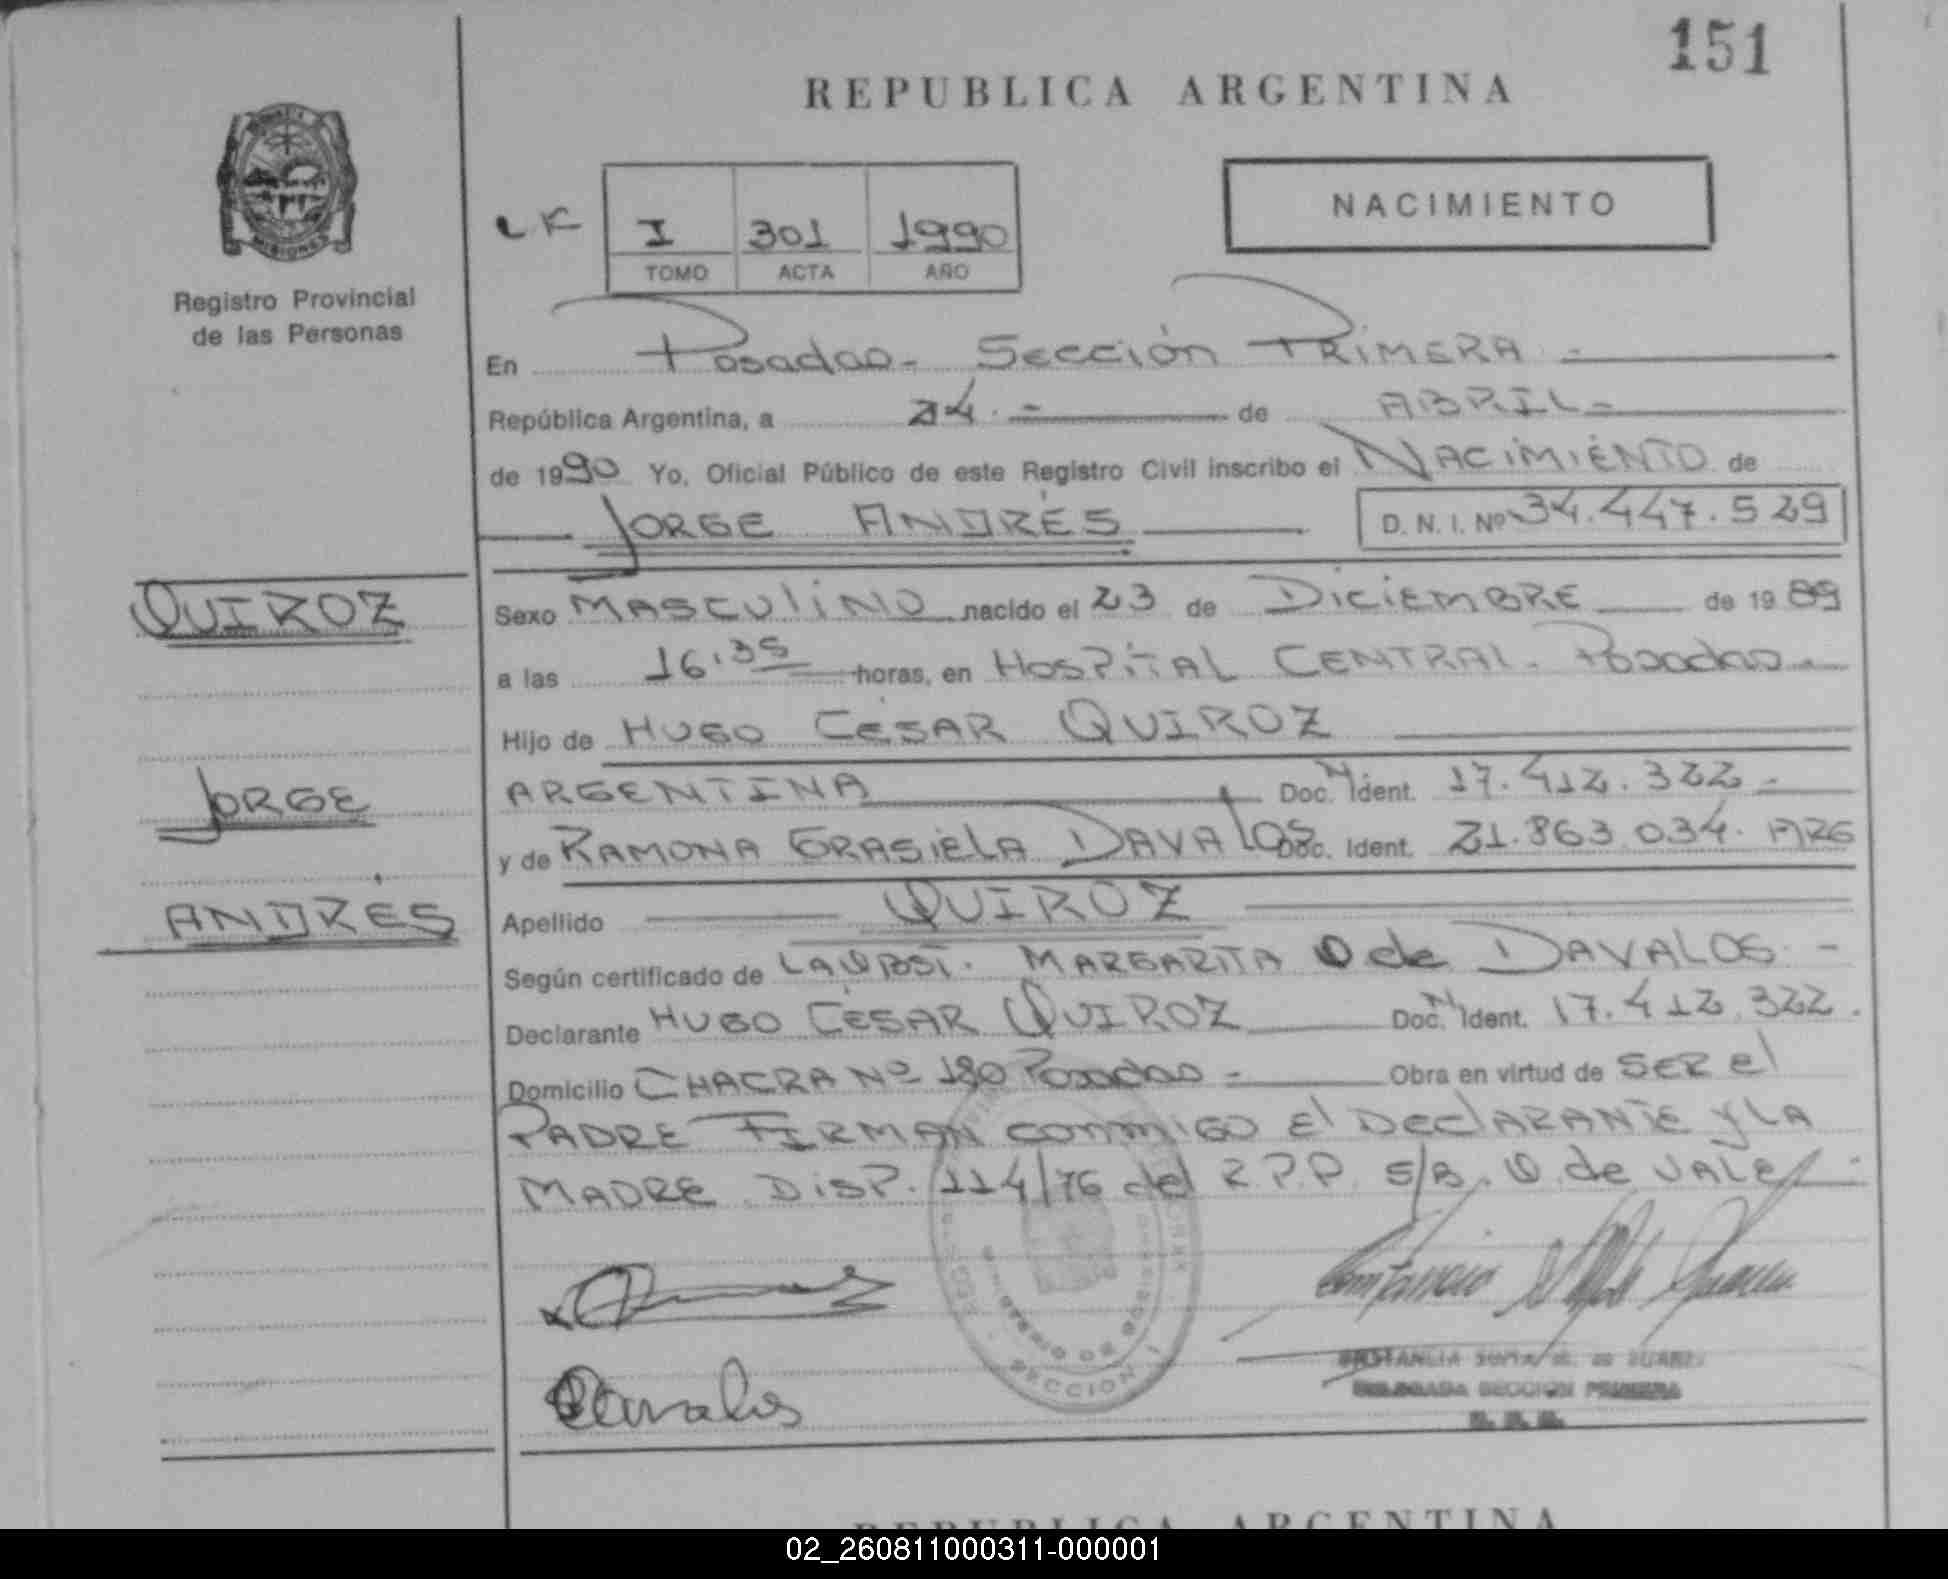 151
REPUBLICA ARGENTINA
NACIMIENTO
I 301 1990
TOMO ACTA AÑO
MISIONES
Registro Provincial
de las Personas
En Posadas - Sección PRIMERA -
República Argentina, a 24. - de ABRIL -
de 1990 Yo, Oficial Público de este Registro Civil inscribo el NACIMIENTO de
JORGE ANDRÉS D. N. I. Nº 34.447.529
QUIROZ
JORGE
ANDRÉS
Sexo MASCULINO nacido el 23 de DICIEMBRE de 1989
a las 16,35 horas, en HOSPITAL CENTRAL - Posadas -
Hijo de HUGO CÉSAR QUIROZ
ARGENTINA Doc. N Ident. 17.412.322 -
y de RAMONA GRASIELA DAVALOS Doc. Ident. 21.863.034. ARG
Apellido QUIROZ
Según certificado de MARGARITA O de DAVALOS -
Declarante HUGO CÉSAR QUIROZ Doc. N Ident. 17.412.322.
Domicilio CHACRA Nº 180 Posadas - Obra en virtud de SER el
PADRE FIRMAN conmigo El DeclARANTE y LA
MADRE DISP. 114/76 del R.P.P. S/B. O. de VALE -
Davalos
SECCION 1
DELEGADA SECCION PRIMERA
REPUBLICA ARGENTINA
02_260811000311-000001